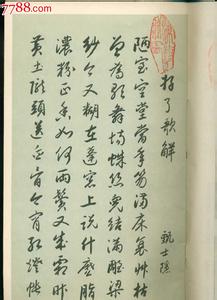 7788.com
好了歌解
甄士隱
陋室空堂當年笏滿床衰草枯
曾為歌舞場蛛絲兒結滿雕梁
紗今又糊在蓬窗上說什麼脂
濃粉正香如何兩鬢又成霜昨
黃土隴頭送白骨今宵紅燈帳